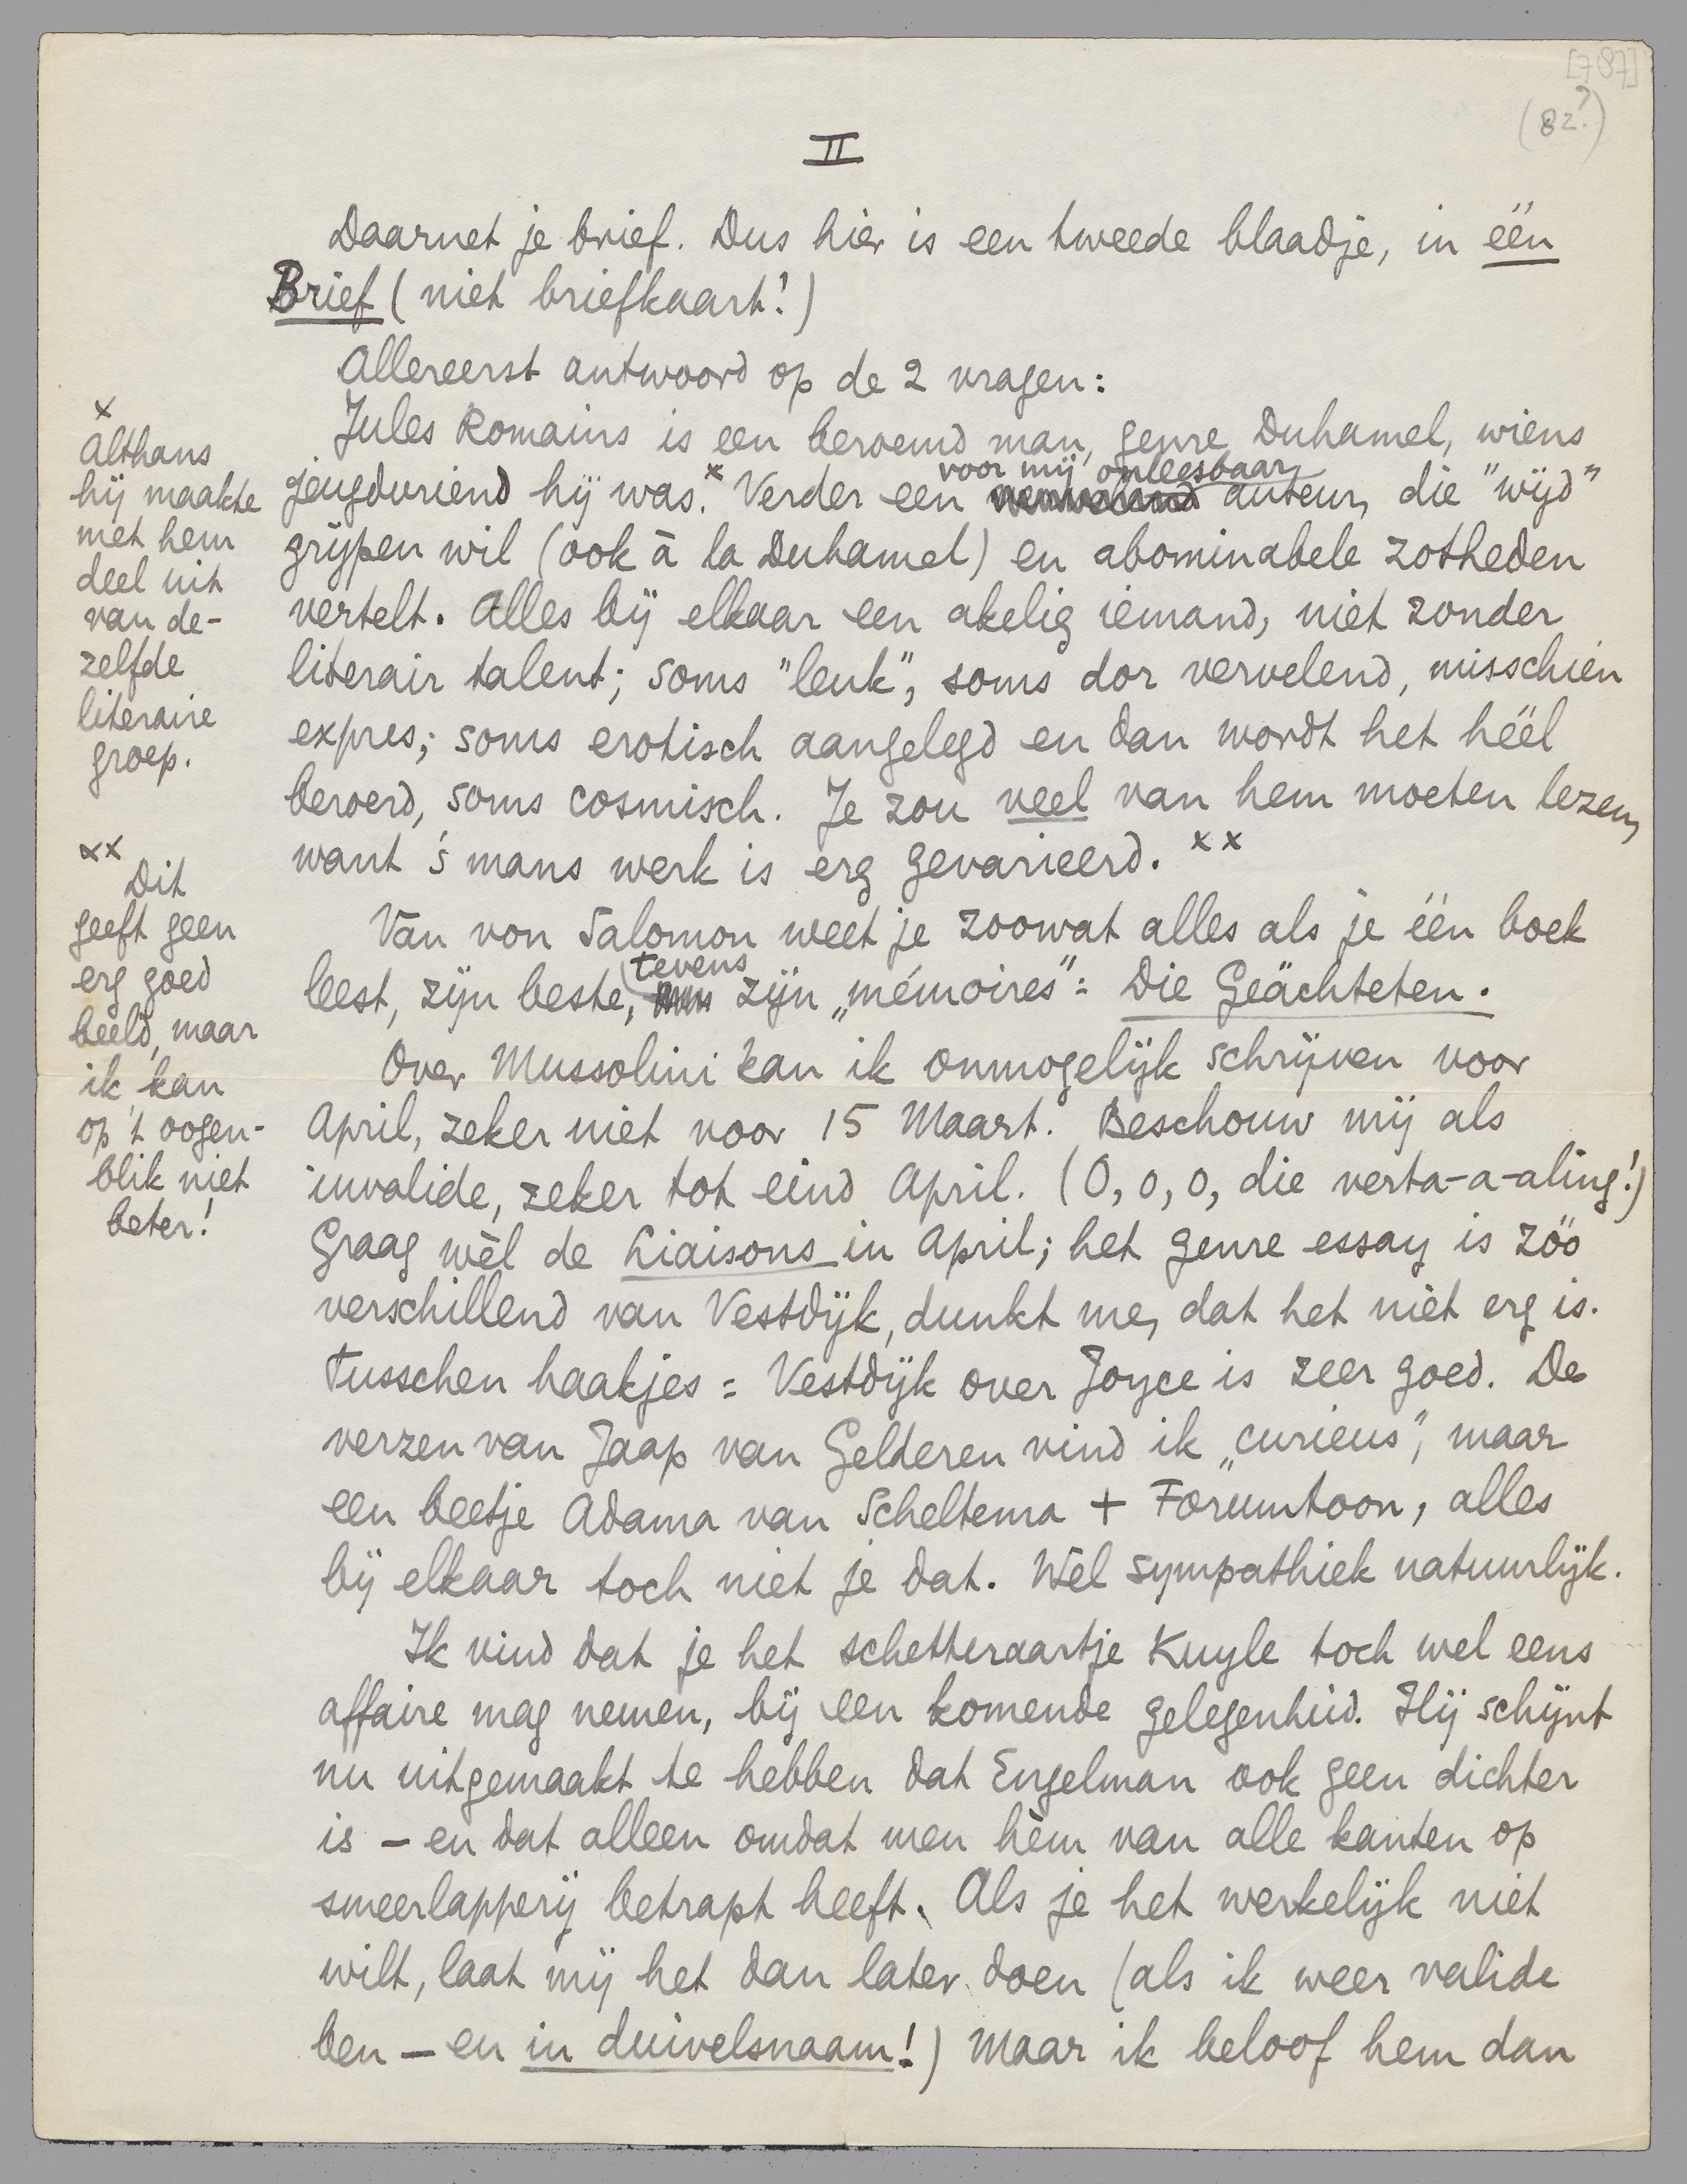 [787]
(82?)
II
Daarnet je brief. Dus hier is een tweede blaadje, in één
Brief (niet briefkaart!)
Allereerst antwoord op de 2 vragen:
Jules Romains is een beroemd man, genre Duhamel, wiens
jeugdvriend hij was.x Verder een voor mij onleesbaar auteur, die "wijd"
grijpen wil (ook à la Duhamel) en abominabele zotheden
vertelt. Alles bij elkaar een akelig iemand, niet zonder
literair talent; soms "leuk", soms dor vervelend, misschien
expres; soms erotisch aangelegd en dan wordt het héél
beroerd, soms cosmisch. Je zou veel van hem moeten lezen,
want 's mans werk is erg gevarieerd. xx
Van von Salomon weet je zoowat alles als je één boek
leest, zijn beste, tevens zijn „mémoires": Die Geächteten.
Over Mussolini kan ik onmogelijk schrijven voor
April, zeker niet voor 15 Maart. Beschouw mij als
invalide, zeker tot eind April. (O, o, o, die verta-a-aling!)
Graag wèl de Liaisons in April; het genre essay is zóó
verschillend van Vestdijk, dunkt me, dat het niet erg is.
Tusschen haakjes: Vestdijk over Joyce is zeer goed. De
verzen van Jaap van Gelderen vind ik „curieus", maar
een beetje Adama van Scheltema + Forumtoon, alles
bij elkaar toch niet je dat. Wèl sympathiek natuurlijk.
Ik vind dat je het schetteraartje Kuyle toch wel eens
affaire mag nemen, bij een komende gelegenheid. Hij schijnt
nu uitgemaakt te hebben dat Engelman ook geen dichter
is – en dat alleen omdat men hèm van alle kanten op
smeerlapperij betrapt heeft. Als je het werkelijk niet
wilt, laat mij het dan later doen (als ik weer valide
ben – en in duivelsnaam!) Maar ik beloof hem dan
x
Althans
hij maakte
met hem
deel uit
van de-
zelfde
literaire
groep.
xx
Dit
geeft geen
erg goed
beeld, maar
ik kan
op 't oogen-
blik niet
beter!